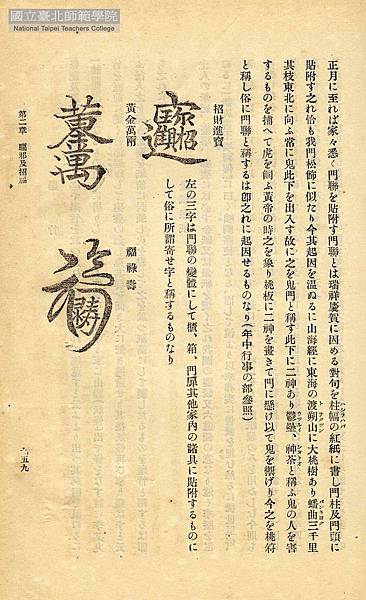 國立臺北師範學院
National Taipei Teachers College
正月に至れば家々悉く門聯を貼附す門聯とは瑞祥慶賀に因める對句を柱幅の紅紙に書し門柱及門頭に
貼附す之れ恰も我門松飾に似たり今其起因を溫ぬるに山海經に東海の渡朔山に大桃樹あり蟠曲三千里
其枝東北に向ふ常に鬼此下を出入す故に之を鬼門と稱す此下に二神あり鬱壘、神荼と稱ふ鬼の人を害
するものを捕へて虎を飼ふ黃帝の時之を象り桃板に二神を畫きて門に懸け以て鬼を禦げり今之を桃符
と稱し俗に門聯と稱するは卽之れに起因せるものなり(年中行事の部參照)
招財進寶
左の三字は門聯の變體にして櫃、箱、門扉其他家內の諸具に貼附するものに
して俗に所謂寄せ字と稱するものなり
黃金萬兩
福祿壽
第二章 驅邪及招福
五九